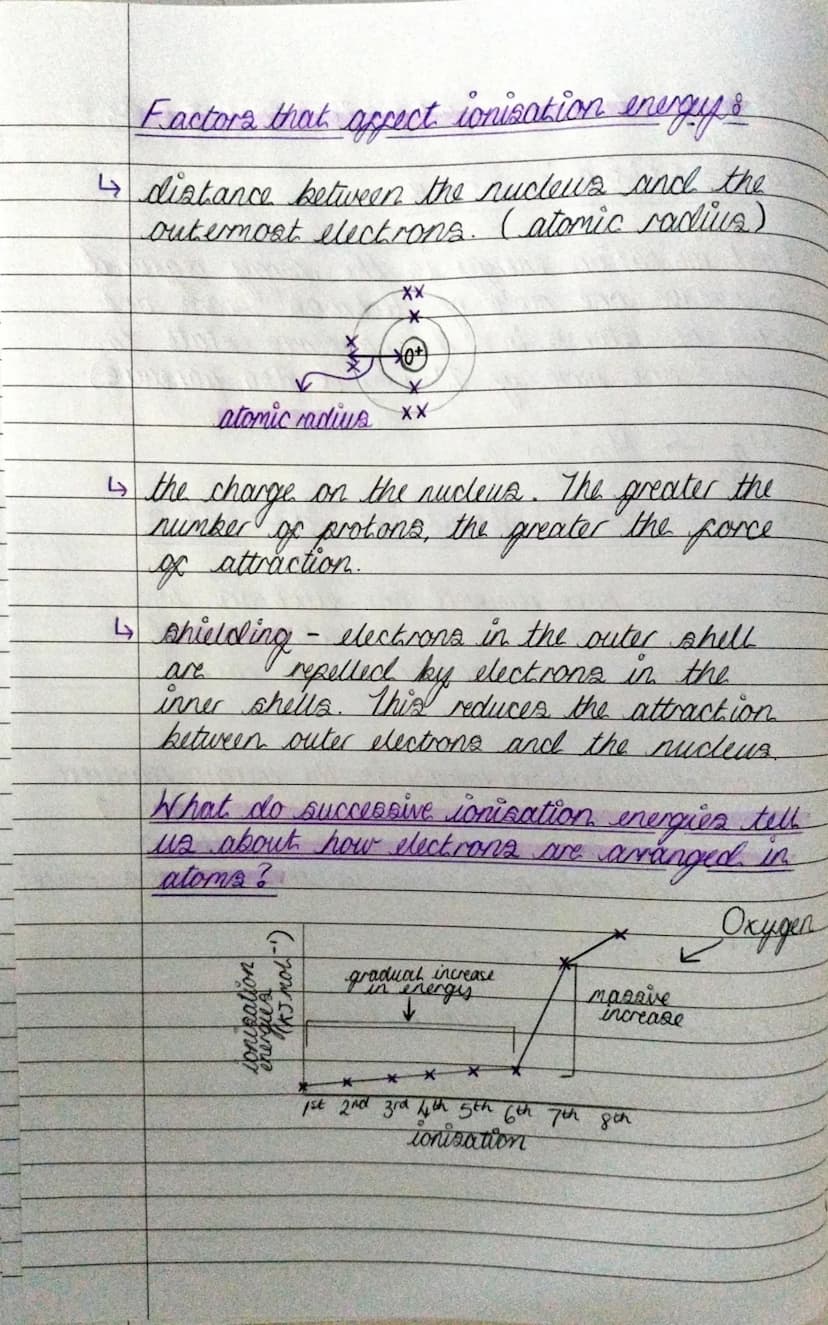 Factors that affect ionisation energy:
↳ distance between the nucleus and the
outermost electrons. (atomic radius)
xx
x
0+
x
xx
atomic radius
↳ the charge on the nucleus. The greater the
number of protons, the greater the force
of attraction.
↳ shielding - electrons in the outer shell
are repelled by electrons in the
inner shells. This reduces the attraction
between outer electrons and the nucleus.
What do successive ionisation energies tell
us about how electrons are arranged in
atoms?
Oxygen
gradual increase
in energy
massive
increase
ionisation
energies
(KJ mol⁻¹)
1st 2nd 3rd 4th 5th 6th 7th 8th
ionisation